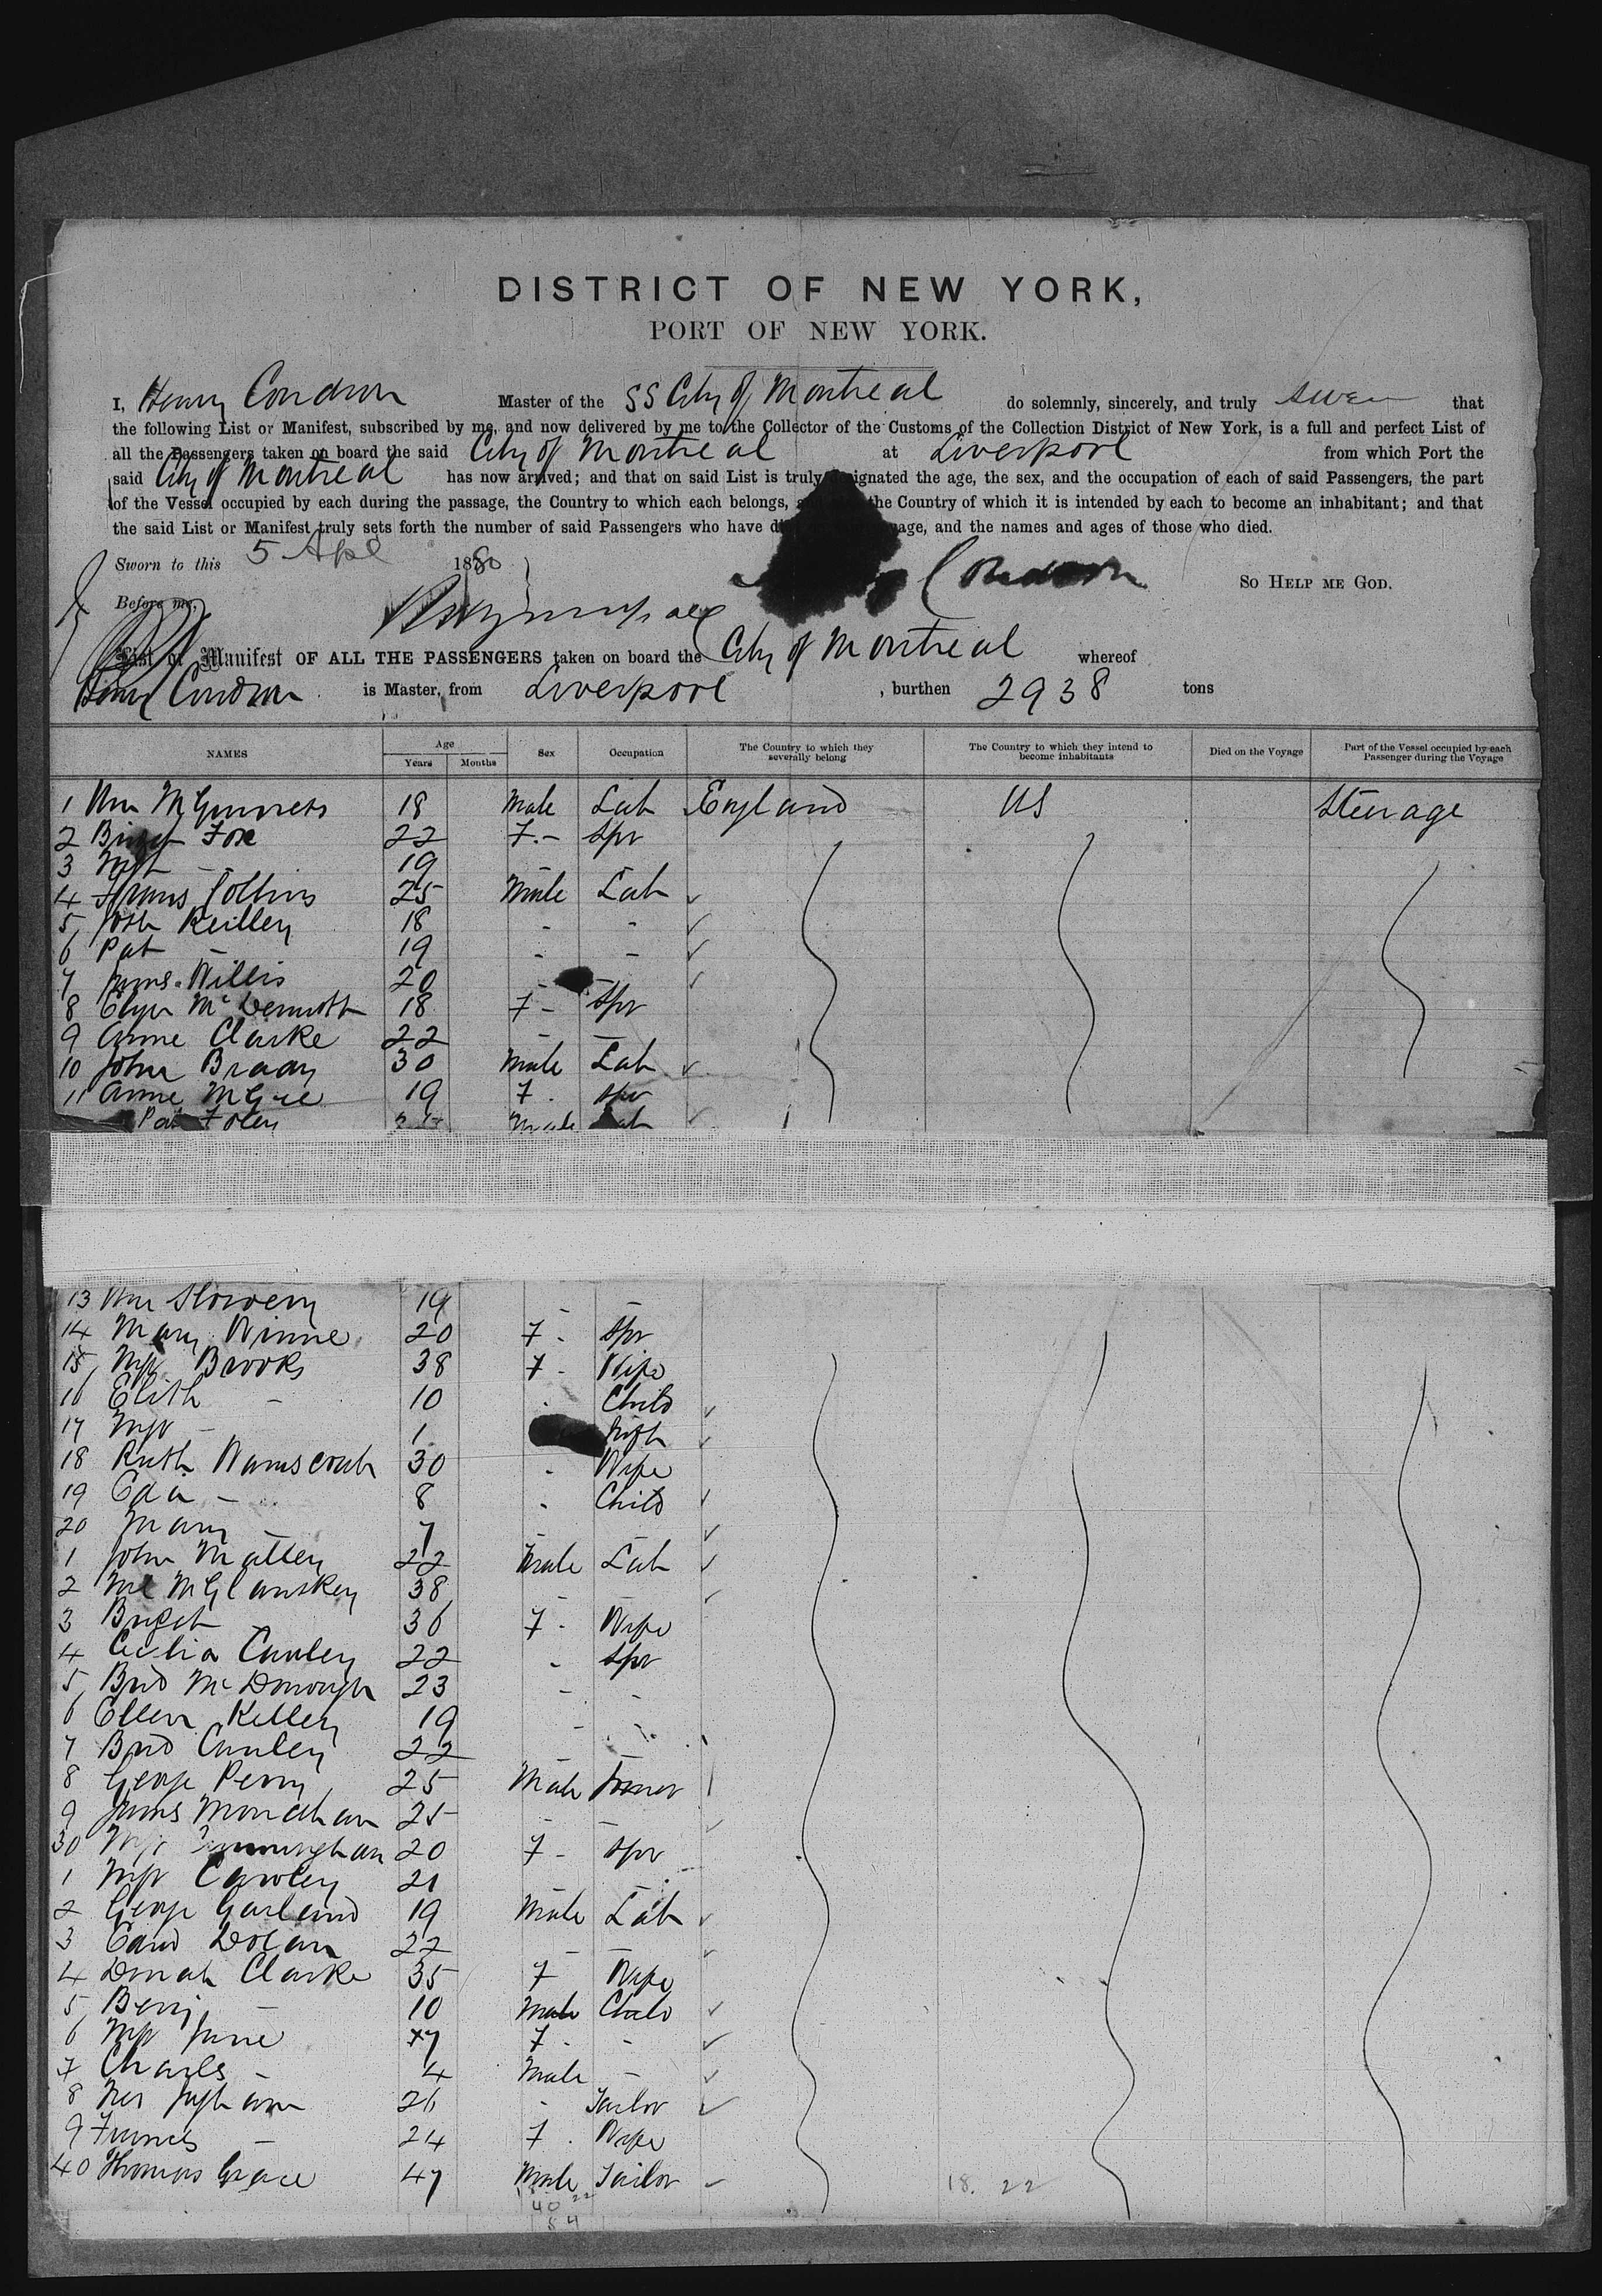 DISTRICT OF NEW YORK,
PORT OF NEW YORK.
I, Henry Condron Master of the SS City of Montreal do solemnly, sincerely, and truly swear that
the following List or Manifest, subscribed by me, and now delivered by me to the Collector of the Customs of the Collection District of New York, is a full and perfect List of
all the Passengers taken on board the said City of Montreal at Liverpool from which Port the
said City of Montreal has now arrived; and that on said List is truly designated the age, the sex, and the occupation of each of said Passengers, the part
of the Vessel occupied by each during the passage, the Country to which each belongs, the Country of which it is intended by each to become an inhabitant; and that
the said List or Manifest truly sets forth the number of said Passengers who have and the names and ages of those who died.
Sworn to this 5 Apl 1880
Condron So Help me God.
Before me,
List or Manifest OF ALL THE PASSENGERS taken on board the City of Montreal whereof
Henry Condron is Master, from Liverpool, burthen 2938 tons
NAMES Age Years Months Sex Occupation The Country to which they severally belong The Country to which they intend to become inhabitants Died on the Voyage Part of the Vessel occupied by each Passenger during the Voyage
1 Wm McGuiness 18 Male Lab England US Steerage
2 Fox 22 F. - Spr
3 Mgt - 19 - -
4 Collins 25 Male Lab
5 Reilley 18 - -
6 Pat - 19 - -
7 James Willis 20 - -
8 McDermott 18 F - Spr
9 Anne Clarke 22 - -
10 John Brady 30 Male Lab
11 Anne McGee 19 F. Spr
Pat Foley Male Lab
13 Wm 19 - -
14 Mary Winne 20 F - Spr
15 Brooks 38 F - Wife
16 Edith - 10 - Child
17 - 1
18 Ruth 30 - Wife
19 Eda - 8 - Child
20 Mary - 7 - -
1 John Malley 22 Male Lab
2 38 - -
3 Bridget - 36 F - Wife
4 Cecilia Cawley 22 - Spr
5 Brid McDonough 23 - -
6 Ellen Kelley 19 - -
7 Brid Cawley 22 - -
8 George Perry 25 Male Farmer
9 James Monathan 25 - -
30 Cunningham 20 F - Spr
1 Cawley 21 - -
2 George Garland 19 Male Lab
3 Dolan 22 - -
4 Dinah Clarke 35 F Wife
5 Benj - 10 Male Child
6 Jane 7 F - -
7 Charles - 4 Male -
8 26 - Tailor
9 Frances - 24 F. Wife
40 Thomas Grace 47 Male Tailor
18. 22
40 22
84